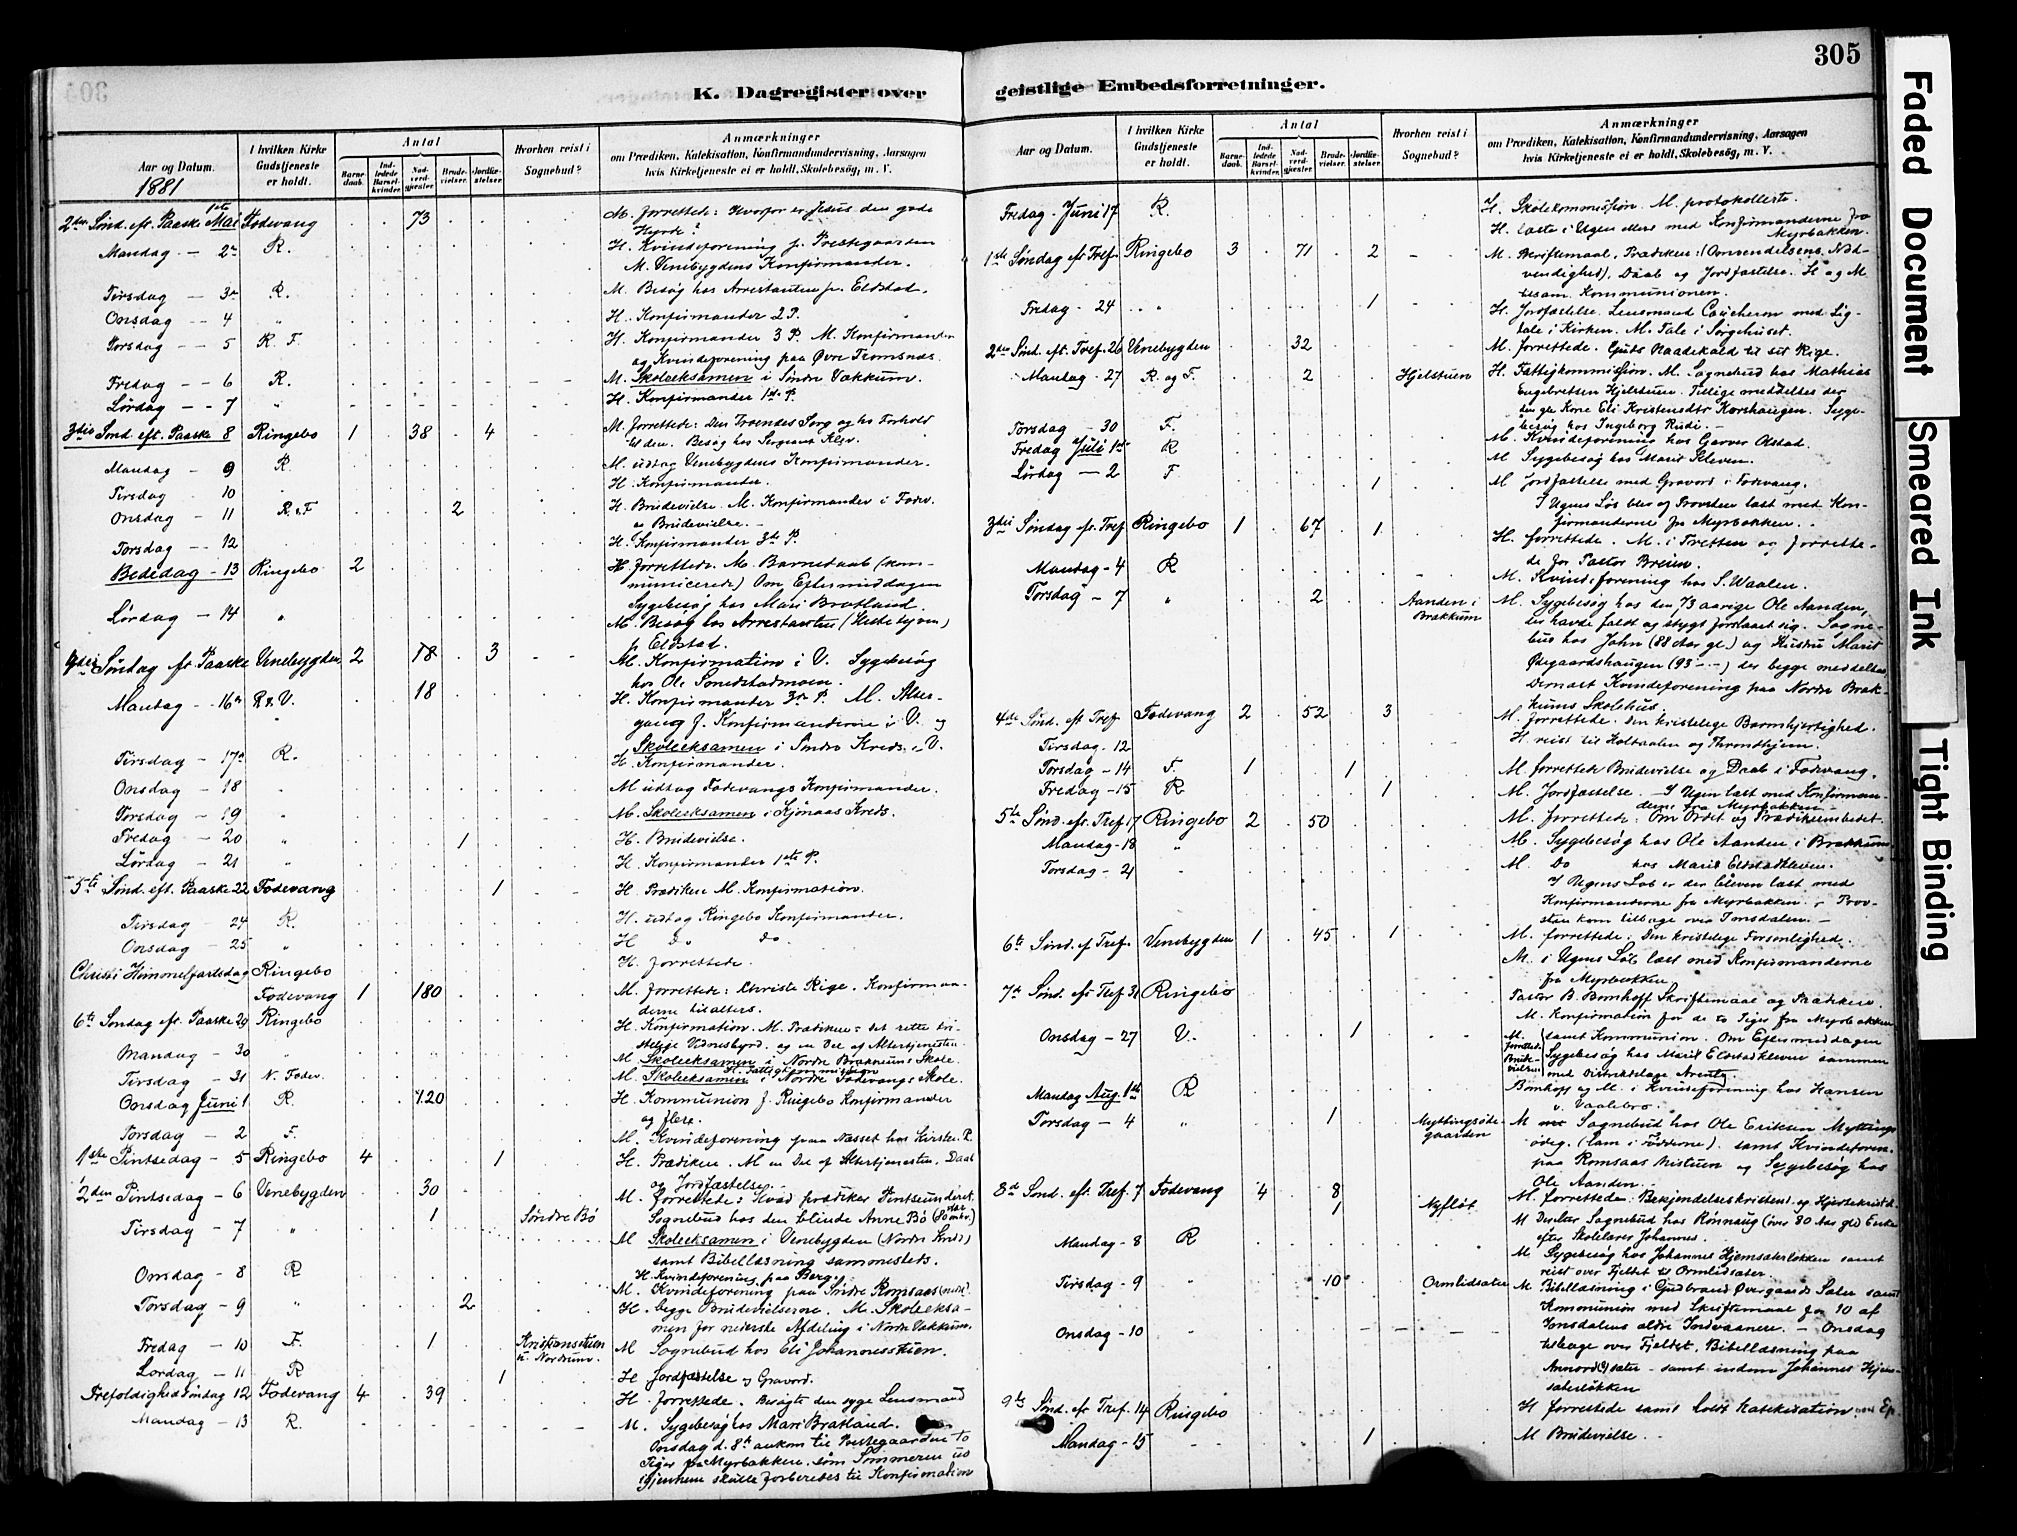 305
K. Dagregister over
Aar og Datum.
1881
I hvilken Kirke Gudstjeneste er holdt.
Antal
Barnedaab.
Indledede Barselkvinder.
Nadverdgjester.
Brudevielser.
Jordfæstelser.
Hvorhen reist i Sognebud?
Anmærkninger
om Prædiken, Katekisation, Konfirmandundervisning, Aarsagen
hvis Kirketjeneste ei er holdt, Skolebesøg, m. V.
2den Sønd. eft. Paaske 1ste Mai Fodevang 73 M. forrettede: Hvorfor er Jesus den gode
Hyrde?
Mandag - 2n R. H. Kvindeforening p. Prestegaarden
M. Venebygdens Konfirmander.
Tirsdag - 3n R. M. Besøg hos Arrestanten p. Eldstad.
Onsdag - 4 " H. Konfirmander 2 P.
Torsdag - 5 R F. H. Konfirmander 3 P. M. Konfirmander
og Kvindeforening paa Øvre Tromsnæs.
Fredag - 6 R. M. Skoleeksamen i Søndre Vækkum.
Lørdag - 7 " H. Konfirmander 1st. P.
3die Sønd. eft. Paaske 8 Ringebo 1 38 4 M. forrettede: Den Troendes Sorg og hs Forhold
til den. Besøg hos Sergeant
Mandag - 9 R. M. udtog Venebygdens Konfirmander.
Tirsdag - 10 " H. Konfirmander.
Onsdag - 11 R. o F 2 H. Brudevielse. M. Konfirmander i Fodev.
og Brudevielse.
Torsdag - 12 H. Konfirmander 3te P.
Bededag - 13 Ringebo 2 H. forrettede. M. Barnedaab (kom-
municerede) Om Eftermiddagen
Sygebesøg hos Mari Bratland.
Lørdag - 14 " M. Besøg hos Arrestanten (Hestetyven)
p. Eldstad.
4de Søndag ft. Paaske Venebygden 2 78 3 M. Konfirmation i V. Sygebesøg
hos Ole
Mandag - 16n R. o. V. 18 H. Konfirmander 3die P. M. Alter-
gang f. Konfirmanderne i V. og
Skoleeksamen i Søndre Kreds i V.
Tirsdag - 17n R. H. Konfirmander.
Onsdag - 18 " M udtog Fodevangs Konfirmander.
Torsdag - 19 " M. Skoleeksamen i Kjønaas Kreds.
Fredag - 20 " 1 H. Brudevielse.
Lørdag - 21 " H. Konfirmander 1ste P.
5te Sønd. eft. Paaske 22 Fodevang 1 H. Prædiken M. Konfirmation.
Tirsdag - 24 R. H. udtog Ringebo Konfirmander.
Onsdag - 25 " H Do Do.
Christi Himmelfartsdag Ringebo H. forrettede.
Fodevang 1 180 M. forrettede: Christi Rige. Konfirman-
derne tilalters.
6te Søndag eft. Paaske 29 Ringebo H. Konfirmation. M. Prædiken: det rette kri-
stelige Vidnesbyrd. og en Del af Altertjenesten
Mandag - 30 " M Skoleeksamen i Nordre Brækkums Skole.
H. Fattigkommission
Tirsdag - 31 N. Fodev. M. Skoleeksamen i Nordre Fodevangs Skole.
Onsdag Juni 1 R. 120 H. Kommunion f. Ringebo Konfirmander
og flere.
Torsdag - 2 F. M. Kvindeforening paa Næsset hos Kirste. P.
1ste Pintsedag - 5 Ringebo 4 1 H. Prædiken. M en Del af Altertjenesten. Daab
og Jordfæstelse.
2den Pintsedag - 6 Venebygden 30 M. forrettede: Hvad prædiker Pintseunderet.
1 Søndre Bø Sognebud hos den blinde Anne Bø
Tirsdag - 7 " M Skoleeksamen i Venebygden (Nordre Kreds)
samt Bibellæsning sammesteds.
Onsdag - 8 R H. Kvindeforening paa Berg.
M. Kvindeforening paa Søndre Romsaas
Torsdag - 9 " 2 H. begge Brudevielserne. M. Skoleeksa-
men for nederste Afdeling i Nordre Vækkum.
Fredag - 10 F. 1 Kristiansstuen u. Nordrum. M Sognebud hos Eli Johannesstuen.
Lørdag - 11 R 1 H Jordfæstelse og Gravord.
Trefoldighedssøndag 12 Fodevang 4 39 H. forrettede. Besøgte den syge Lensmand
Mandag - 13 R. M. Sygebesøg hos Mari Bratland.
Onsdag d. 8de ankom til Prestegaarden to
Piger fra Myrbakken, som Sommeren ud
igjennem skulle forberedes til Konfirmation
geistlige Embedsforretninger.
Aar og Datum.
I hvilken Kirke Gudstjeneste er holdt.
Antal
Barnedaab.
Indledede Barselkvinder.
Nadverdgjester.
Brudevielser.
Jordfæstelser.
Hvorhen reist i Sognebud?
Anmærkninger
om Prædiken, Katekisation, Konfirmandundervisning, Aarsagen
hvis Kirketjeneste ei er holdt, Skolebesøg, m. V.
Fredag - Juni 17 R. H. Skolekommission. M. protokollerte.
H. læste i Ugen med Konfirmanderne fra
Myrbakken.
1ste Søndag eft Tref. Ringebo 3 71 2 M. Skriftemaal, Prædiken: (Omvendelsens Nød-
vendighed), Daab og Jordfæstelse. H og M
tilsam. Kommunionen.
Fredag - 24 " 1 H. Jordfæstelse. Lensmand med Lig-
tale i Kirken. M. Tale i Sørgehuset.
2den Sønd. eft. Tref. 26 Venebygden 32 M. forrettede. Guds Naadekald til sit Rige.
Mandag - 27 R. og F. 2 Hjelstuen H. Fattigkommission. M. Sognebud hos Mathias
Engebretsen Hjelstuen. Tillige meddeltes der
den gle Kone Eli Kristensdtr Korshaugen. Syge-
besøg hos Ingeborg Rudi.
Torsdag - 30 F. M. Kvindeforening hos Garver Olstad.
Fredag Juli 1ste R M Sygebesøg hos Marit Kleven.
Lørdag - 2 F 1 M Jordfæstelse med Gravord i Fodevang.
I Ugens Løb blev og Provsten læst med Kon-
firmanderne fra Myrbakken.
3die Søndag eft. Tref Ringebo 1 67 1 H. forrettede. M. i Tretten og forrette-
de for Pastor Breien.
Mandag - 4 R M. Kvindeforening hos S. Waalen.
Torsdag - 7 " 2 Aanden i Brækkum M. Sygebesøg hos den 73 aarige Ole Aanden,
der havde faldt og stygt forslaaet sig. Sogne-
bud hos John (88 Aar gl.) og Hustru Marit
Ødegaardshaugen (93 - -) der begge meddeltes
Dernæst Kvindeforening paa Nordre Bræk-
kums Skolehus.
4de Sønd. eft Tref Fodevang 2 52 3 M. forrettede. Den kristelige Barmhjertighed.
Tirsdag - 12 H. reist til Holtaalen og Throndhjem.
Torsdag - 14 F. 1 1 M. forrettede Brudevielse og Daab i Fodevang.
Fredag - 15 R 1 M. Jordfæstelse. - I Ugen læst med Konfirman-
derne fra Myrbakken -
5te Sønd. ef. Tref. 17 Ringebo 2 50 M. forrettede: Om Ordet og Prædikeembedet.
Mandag - 18 " M. Sygebesøg hos Ole Aanden i Brækkum
Torsdag - 21 " M. Do hos Marit Eldstadkleven.
I Ugens Løb er der bleven læst med
Konfirmanderne fra Myrbakken. Prov-
sten kom tilbage over Imsdalen. -
6te Sønd. ef Tref. Venebygden 1 45 1 M. forrettede: Den kristelige Forsonlighed.
M. i Ugens Løb læst med Konfirmanderne
fra Myrbakken
7de Sønd. eft Tref 31 Ringebo Pastor B. Bomhoff Skriftemaal og Prædiken.
M. Konfirmation for de to Piger fra Myrbakken
Onsdag - 27 V. 1 M. forrettede Brudevielsen samt Kommunion. Om Eftermiddagen
Sygebesøg hos Marit Eldstadkleven sammen
med Distriktslæge Arentz.
Mandag Aug. 1ste R Bomhoff og M. i Kvindeforening hos Hansen
v. Vaalebro.
Torsdag - 4 " 1 Myttingsøde-gaarden M Sognebud hos Ole Eriksen Myttings
ødeg. (Lam i Fødderne). samt Kvindeforen.
paa Romsaas Nistuen og Sygebesøg hos
Ole Aanden.
8de Sønd. eft. Tref. 7 Fodevang 4 8 M. forrettede: Bekjendelseskristend. og Hjertekristd.
1 Nyfløt M Derefter Sognebud hos Rønnaug (over 80 Aar gl.) Enke
efter Skolelærer Johannes.
Mandag - 8 R M. Sygebesøg hos Johannes Hjemsæterløkken samt
reist over Fjeldet til Ormlidsæter.
Tirsdag - 9 " 10 Ormlidsæter M Bibellæsning i Gudbrand Øvergaards Sæter samt
Kommunion med Skriftemaal for 10 af
Imsdalens ældre Indvaanere. - Onsdag
Onsdag - 10 " tilbage over Fjeldet, Bibellæsning paa
sæter - samt indom Johannes Hjem-
sæterløkken
9de Sønd. ef. Tref. 14 Ringebo H forrettede samt holdt Katekisation
Mandag - 15 1 M Brudevielse.
Faded Document
Smeared Ink
Tight Binding